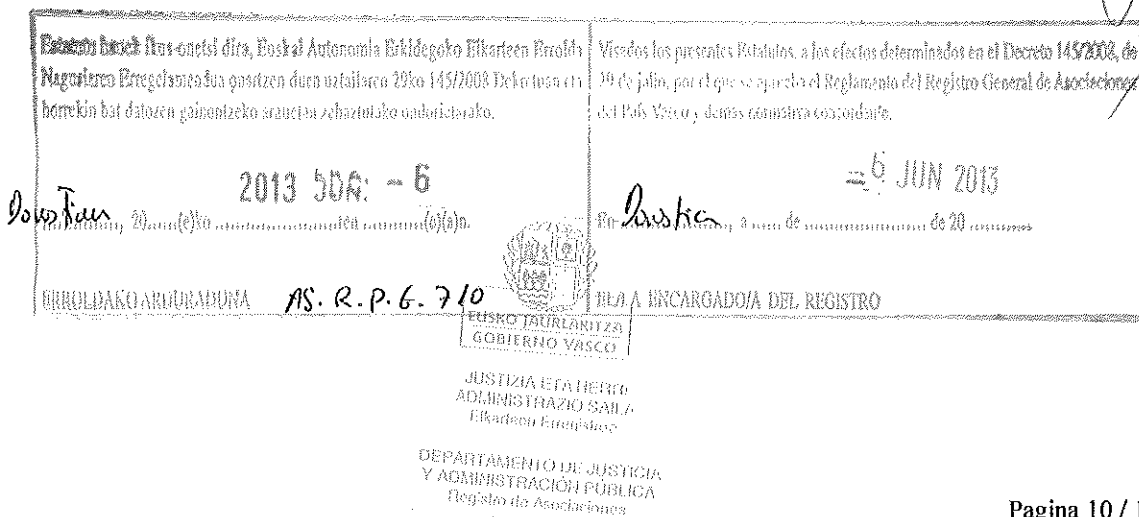 Estatutu hauek ikus-onetsi dira, Euskal Autonomia Erkidegoko Elkarteen Errolda
Nagusiaren Erregelamendua onartzen duen uztailaren 29ko 145/2008 Dekretuan eta
horrekin bat datozen gainontzeko arauetan zehaztutako ondorioetarako.
2013 - 6
Donostian, 20.....(e)ko ........................ren ............(e)(a)n.
ERROLDAKO ARDURADUNA AS. R. P. G. 710
Visados los presentes Estatutos, a los efectos determinados en el Decreto 145/2008, de
29 de julio, por el que se aprueba el Reglamento del Registro General de Asociaciones
del País Vasco y demás normativa concordante.
- 6 JUN 2013
En Donostian, a ..... de ........................ de 20 ...........
EL/LA ENCARGADO/A DEL REGISTRO
EUSKO JAURLARITZA
GOBIERNO VASCO
JUSTIZIA ETA HERRI
ADMINISTRAZIO SAILA
Elkarteen Erregistroa
DEPARTAMENTO DE JUSTICIA
Y ADMINISTRACIÓN PÚBLICA
Registro de Asociaciones
Pagina 10 / 1